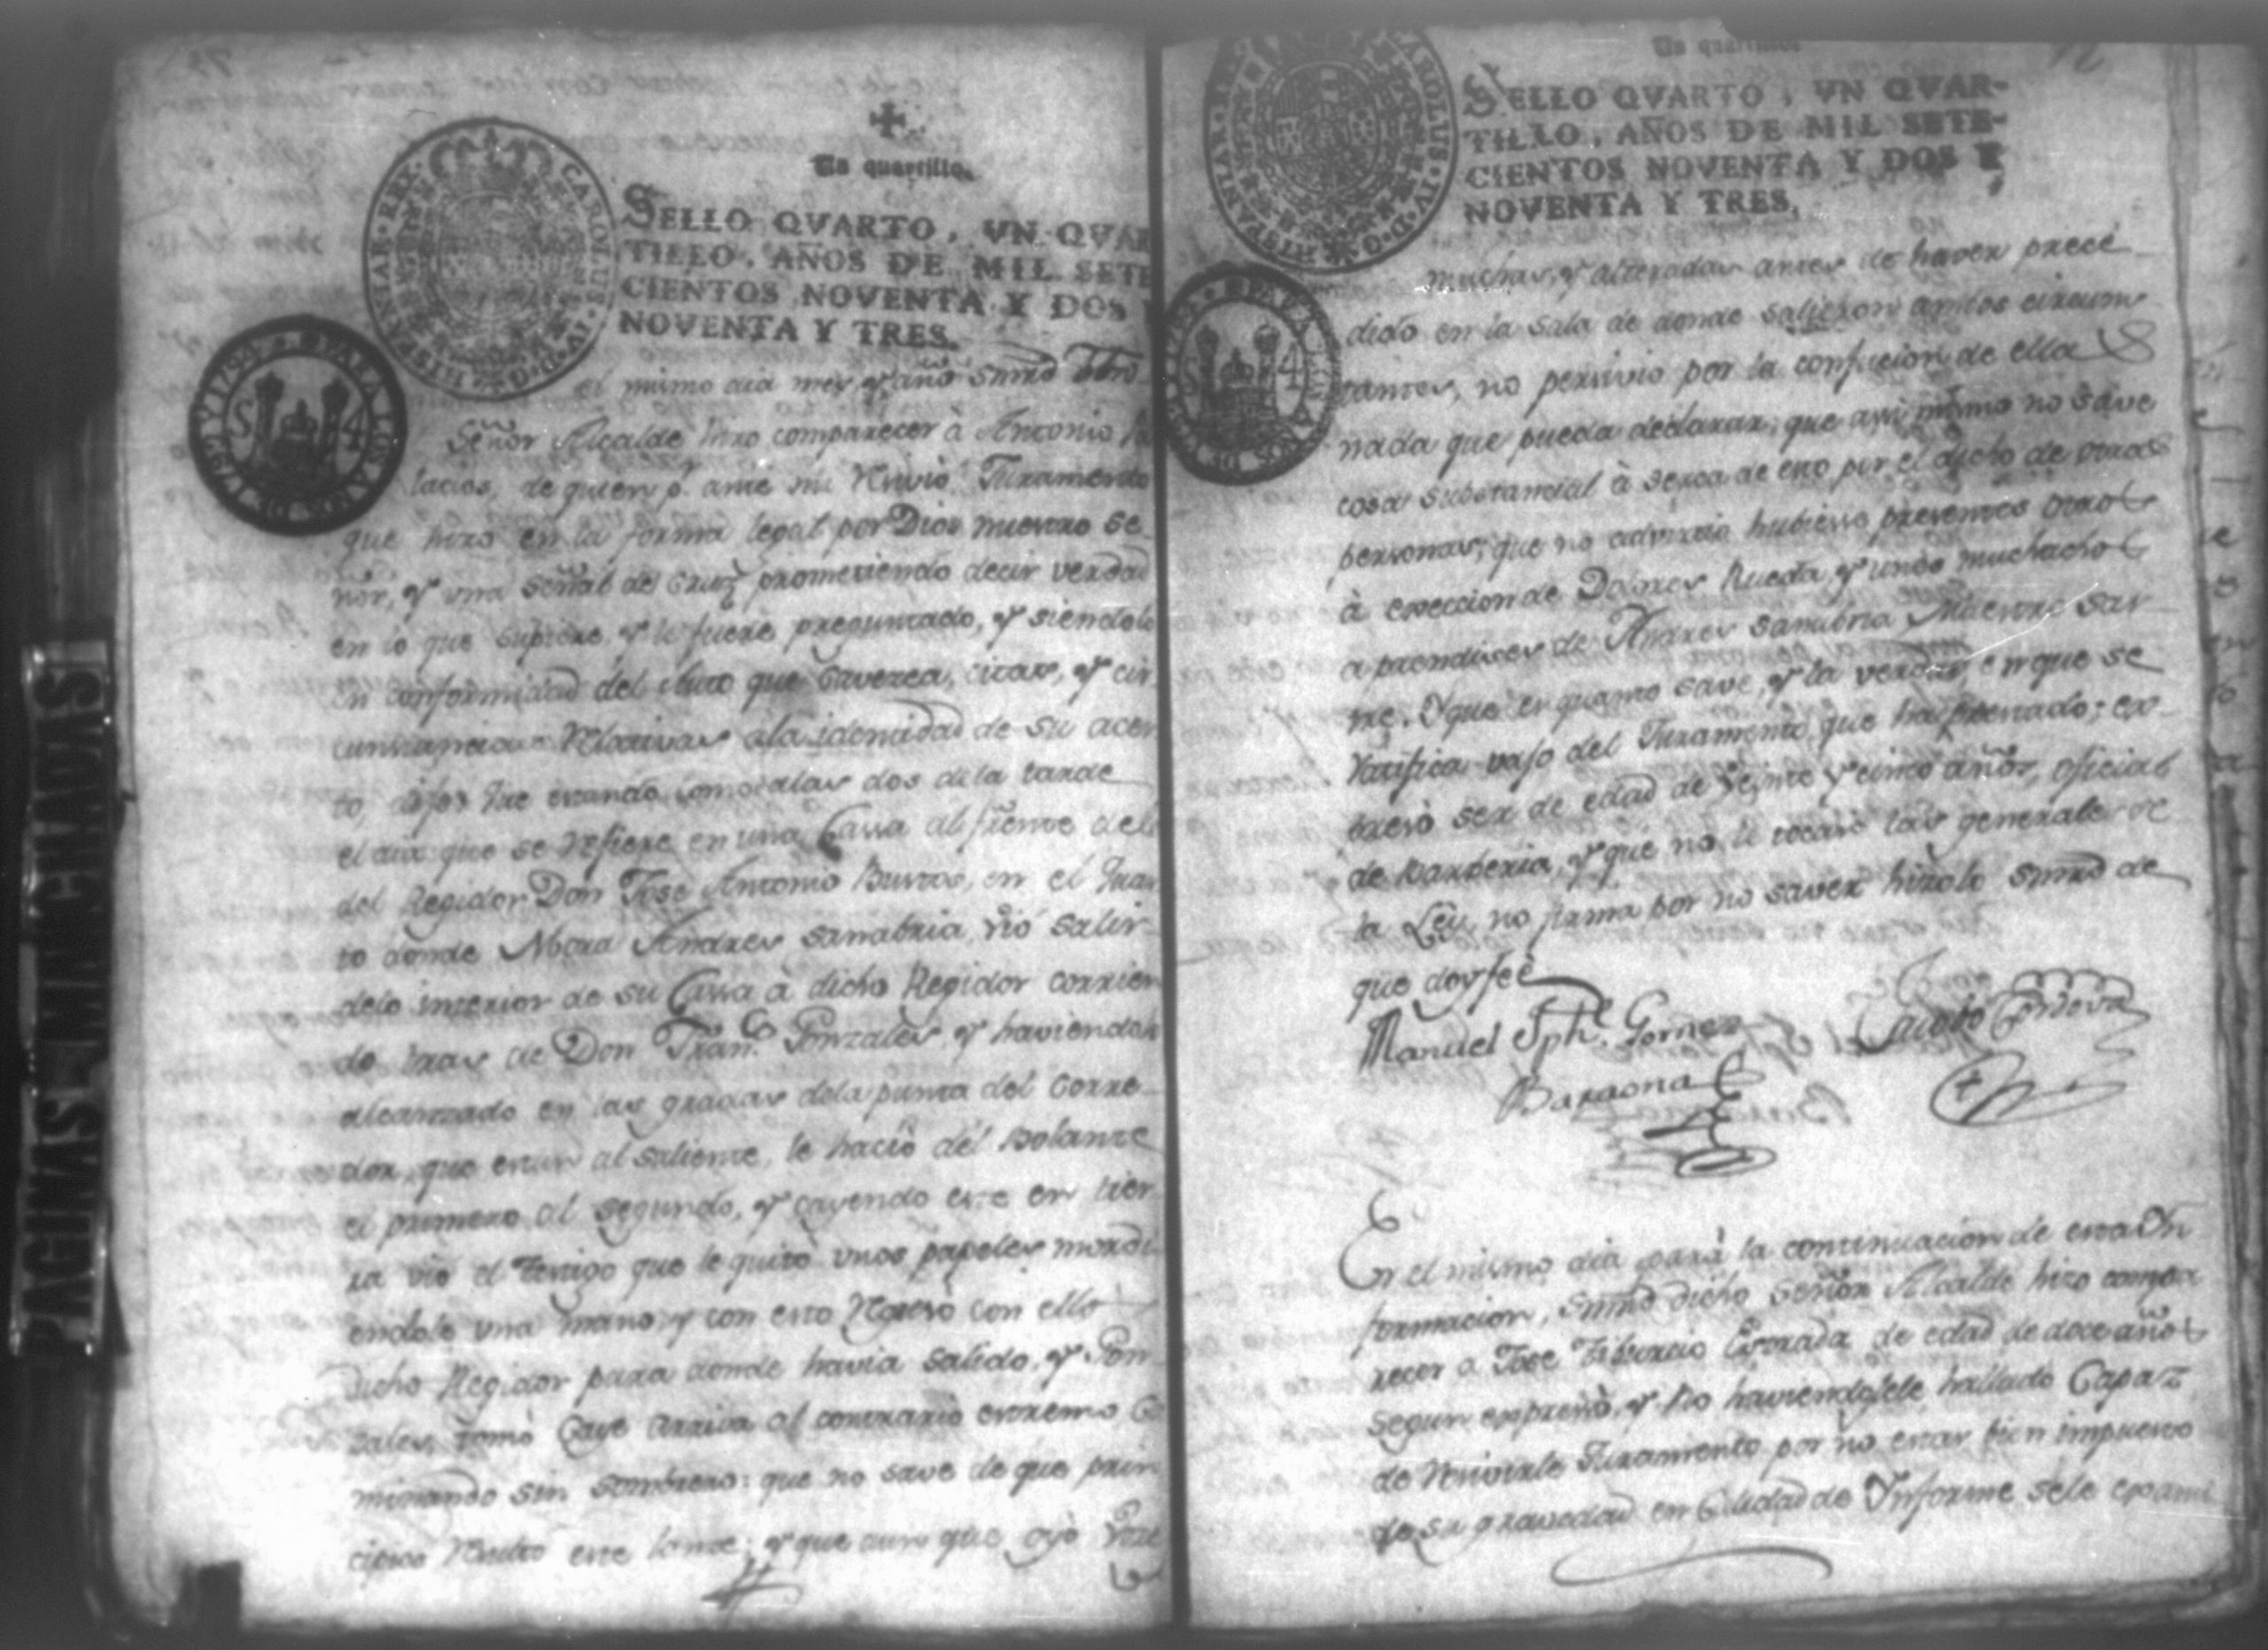 Un quartillo.
SELLO QVARTO, VN QVAR
TILLO, AÑOS DE MIL SETE
CIENTOS NOVENTA Y DOS
NOVENTA Y TRES.
el mismo dia mes, y año Smrd
Señor Alcalde hizo comparecer à Antonio
lacios, de quien p.r ante mi Juramento
que hizo en la forma legal por Dios nuestro Se
ñor, y una señal de Cruz prometiendo decir verdad
en lo que supiere, y le fuere preguntado, y siendolo
en conformidad del Auto que Caveza, citas, y cir
cunstancias Relativas ala identidad de su acer
to, dijo: Que estando como alas dos dela tarde
el dia que se refiere en una Cassa al frente dela
del Regidor Don Jose Antonio Bustos, en el quar
to donde Mora Andres Sanabria, vió salir
delo interior de su Cassa à dicho Regidor corrien
do tras de Don Fran.co Gonzales, y haviendo
alcanzado en las gradas dela punta del Corre
dor, que estan al saliente, le hació del Bolante
el primero al segundo, y cayendo este en tier
ra vio el testigo que le quitó unos papeles mordi
endole una mano, y con esto Regresó con ello
dicho Regidor para donde havia salido, y Gon
zales tomó Caye arriva al contrario extremo Ca
minando sin sombrero: que no save de que prin
cipios Resultó este lance; y que aunque oyó Voce
Un quartillo
SELLO QVARTO, VN QVAR-
TILLO, AÑOS DE MIL SETE-
CIENTOS NOVENTA Y DOS Y
NOVENTA Y TRES.
muchas, y alteradas antes de haver prece
dido en la sala de donde salieron ambos circuns
tantes, no persivio por la confucion de ella
nada que pueda declarar; que assi mismo no save
cosa substancial à serca de eso por el dicho de otras
personas; que no advirtio hubiesse presentes otros
à excecion de Dolores Rueda, y unos muchachos
aprendises de Andres Sanabria Maestro Sas
tre. Y que es quanto save, y la verdad, en que se
Ratifica vajo del Juramento que ha prestado; ex
presó ser de edad de Veinte y cinco años, oficial
de Barberia, y que no le tocan las generales de
la Ley, no firma por no saver hizolo Smrd de
que doy feé
Manuel Jph. Gomez
Baraona
Jacobo Cordova
En el mismo dia para la continuacion de esta In
formacion, Smrd dicho Señor Alcalde hizo compa
recer a Jose Tiburcio Estrada de edad de doce años
segun expresó, y No haviendosele hallado Capaz
de Recivirle Juramento por no estar bien impuesto
de su gravedad en Calidad de Informe sele exami
PAGINAS MANCHADAS